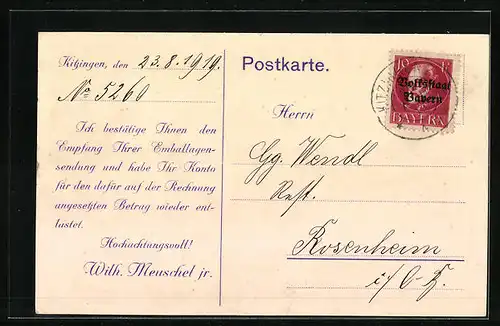 Kitzingen, den 23.8.1919.
No 5260
Ich bestätige Ihnen den
Empfang Ihrer Emballagen-
sendung und habe Ihr Konto
für den dafür auf der Rechnung
angesetzten Betrag wieder ent-
lastet.
Hochachtungsvoll!
Wilh. Meuschel jr.
Postkarte.
10
Volksstaat
Bayern
BAYERN
KITZ
Herrn
Gg. Wendl
Rest.
Rosenheim
i/O B.